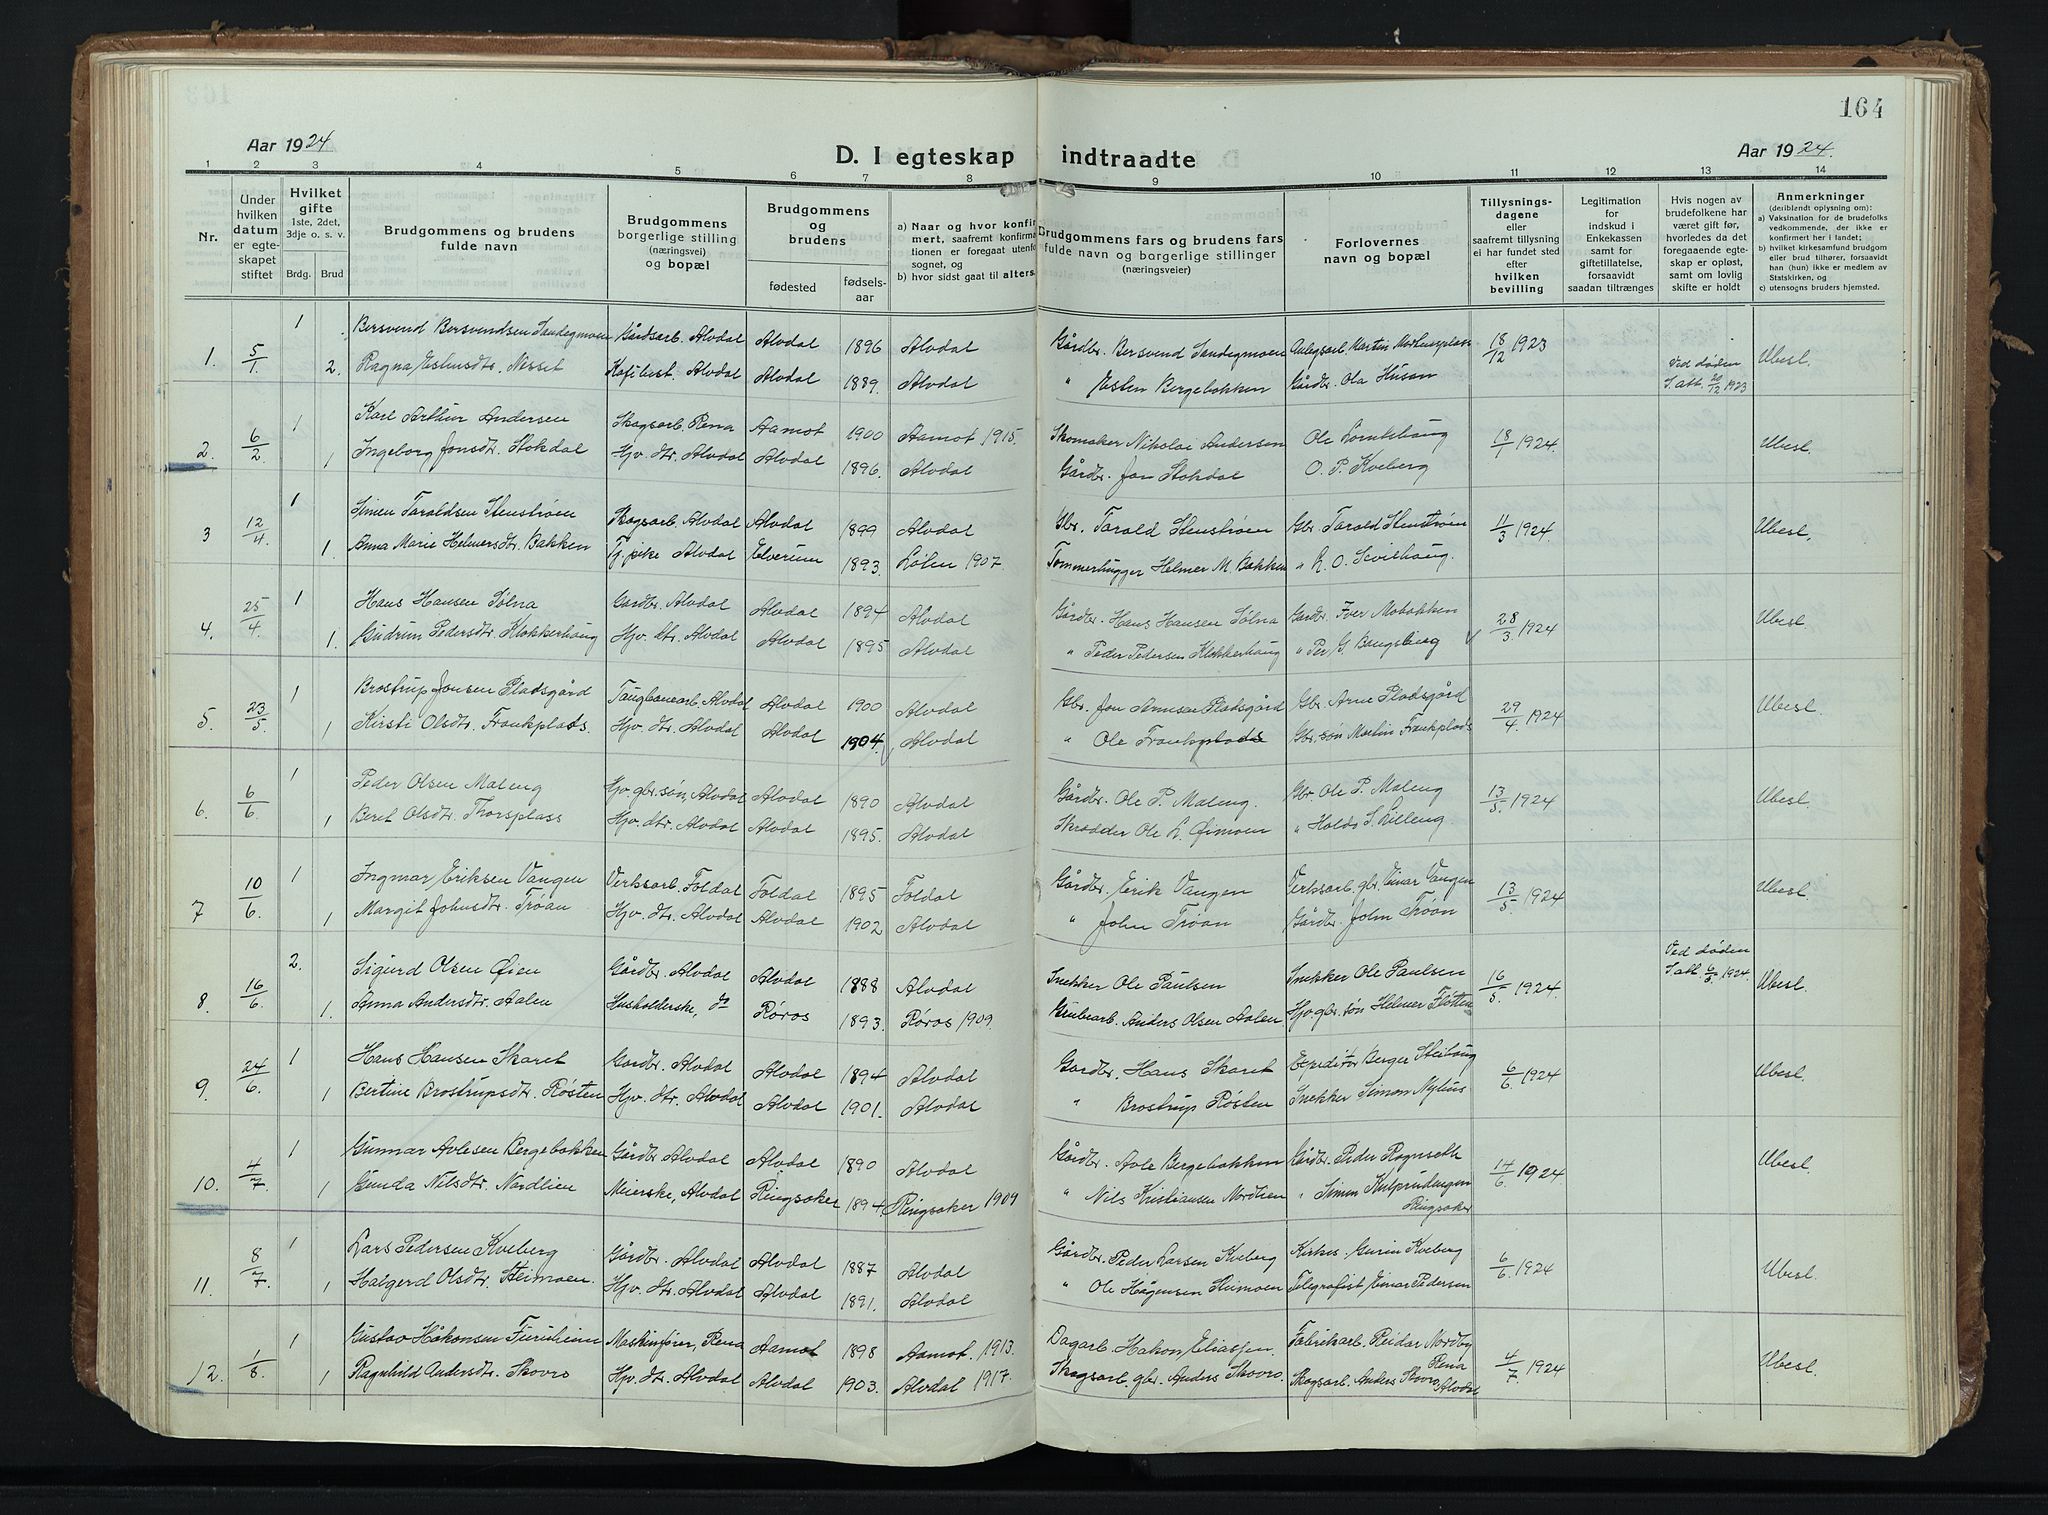 164
Aar 1924
D. I egteskap indtraadte
Aar 1924.
1 2 3 4 5 6 7 8 9 10 11 12 13 14
Nr.
Under hvilken datum er egteskapet stiftet
Hvilket gifte 1ste, 2det, 3dje o. s. v.
Brdg. Brud
Brudgommens og brudens fulde navn
Brudgommens borgerlige stilling (næringsvei) og bopæl
Brudgommens og brudens
fødested fødselsaar
a) Naar og hvor konfirmert, saafremt konfirmationen er foregaat utenfor sognet, og
b) hvor sidst gaat til alters.
Brudgommens fars og brudens fars fulde navn og borgerlige stillinger (næringsveier)
Forlovernes navn og bopæl
Tillysningsdagene eller saafremt tillysning ei har fundet sted efter hvilken bevilling
Legitimation for indskud i Enkekassen samt for giftetillatelse, forsaavidt saadan tiltrænges
Hvis nogen av brudefolkene har været gift før, hvorledes da det foregaaende egteskap er opløst, samt om lovlig skifte er holdt
Anmerkninger (deriblandt oplysning om):
a) Vaksination for de brudefolks vedkommende, der ikke er konfirmert her i landet;
b) hvilket kirkesamfund brudgom eller brud tilhører, forsaavidt han (hun) ikke er medlem av Statskirken, og
c) utensogns bruders hjemsted.
1. 5/1. 1 Bersvend Bersvendsen Sandegmoen Gårdsarb. Alvdal Alvdal 1896 Alvdal Gårdbr. Bersvend Sandegmoen Martin 18/12 1923 Ubesl.
2. Ragna Estensdtr. Nesset Alvdal Alvdal 1889. Alvdal " Esten Bergebakken Gårdbr. Ola Husan Ved døden 20/12 1923
2. 6/2 1 Karl Arthur Andersen Skogsarb. Rena Aamot 1900 Aamot 1915. Skomaker Nikolai Andersen Ole 18/1 1924. Ubesl.
1 Ingeborg Jonsdtr. Stokdal Hjv. dtr. Alvdal Alvdal 1896. Alvdal Gårdbr. Jon Stokdal O. P. Kveberg
3 12/4. 1 Simen Taraldsen Stenstrøen Skogsarb. Alvdal Alvdal 1899 Alvdal Gbr. Tarald Stenstrøen Gbr. Tarald Stenstrøen 11/3 1924. Ubesl.
1. Anna Marie Helmersdtr. Bakken Tj. pike Alvdal Elverum 1893. Løten 1907. Tømmerhugger Helmer M. Bakken
4. 25/4. 1 Hans Hansen Sølna Gardbr. Alvdal Alvdal 1894 Alvdal Gårdbr. Hans Hansen Sølna Gardbr. Iver Mobakken 28/3. 1924 Ubesl.
1. Gudrun Pedersdtr. Klokkerhaug Hjv. dtr. Alvdal Alvdal 1895 Alvdal " Peder Pedersen Klokkerhaug " Per G. Bangsberg
5. 23/5. 1 Brostrup Jonsen Pladsgård Alvdal Alvdal 1900 Alvdal Gbr. Jon Pladsgård Gbr. Arne Pladsgård 29/4. 1924 Ubesl.
1 Kirsti Olsdtr. Frankplads. Hjv. dtr. Alvdal Alvdal 1904. Alvdal " Ole Frankplads Gbr. søn Martin Frankplads
6. 6/6 1 Peder Olsen Maleng Hjv. gbr. søn, Alvdal Alvdal 1890 Alvdal Gårdbr. Ole P. Maleng. Gbr. Ole P. Maleng 13/5. 1924 Ubesl.
1 Beret Olsdtr. Thorsplass Hjv. dtr. Alvdal Alvdal 1895. Alvdal Skrædder Ole L. Øimoen
7 10/6. 1 Ingmar Eriksen Vangen Verksarb. Foldal Foldal 1895 Foldal Gårdbr. Erik Vangen Verksarb. gbr. Einar Vangen 13/5. 1924 Ubesl.
1 Margit Johnsdtr. Trøan Hjv. dtr. Alvdal Alvdal 1902 Alvdal " John Trøan Gårdbr. John Trøan
8. 16/6. 2. Sigurd Olsen Øien Gårdbr. Alvdal Alvdal 1888 Alvdal Snekker Ole Paulsen Snekker Ole Paulsen 16/5. 1924. Ved døden 1924 Ubesl.
1. Anna Andersdtr. Aalen Husholderske, do Røros 1893. Røros 1909. Grubearb. Anders Olsen Aalen Hjv. gbr. søn Helmer Fløtten
9. 24/6. 1 Hans Hansen Skaret Gardbr. Alvdal Alvdal 1894 Alvdal Gardbr. Hans Skaret Expeditør Berger Steihaug 6/6 1924 Ubesl.
1 Bertine Brostrupsdtr. Røsten Hjv. dtr. Alvdal Alvdal 1901. Alvdal " Brostrup Røsten Snekker Simon Nylius
10. 4/7. 1 Gunnar Avlesen Bergebakken Gårdbr Alvdal Alvdal 1890 Alvdal Gårdbr. Avle Bergebakken Gårdbr. Peder Ragnseth 14/6. 1924 Ubesl.
1 Gunda Nilsdtr. Nordlien Meierske, Alvdal Ringsaker 1894. Ringsaker 1909 " Nils Kristiansen Nordlien " Simen Ringsaker
11. 8/7. 1 Lars Pedersen Kveberg Gårdbr. Alvdal Alvdal 1887 Alvdal Gårdbr. Peder Larsen Kveberg Kveberg 6/6. 1924 Ubesl.
1 Halgerd Olsdtr. Steimoen. Hjv. dtr. Alvdal Alvdal 1891. Alvdal " Ole Hågensen Steimoen Telegrafist Einar Pedersen
12. 1/8. 1 Gustav Håkonsen Furuheim Maskinfører, Rena Aamot 1898 Aamot. 1913. Dagarb. Hakon Eliassen. Fabrikarb. Reidar Nordby Rena 4/7. 1924 Ubesl.
1 Ragnhild Andersdtr. Skovro Hjv. dtr. Alvdal Alvdal 1903. Alvdal 1917. Skogsarb. gbr. Anders Skovro. Skogsarb. Anders Skovro Alvdal